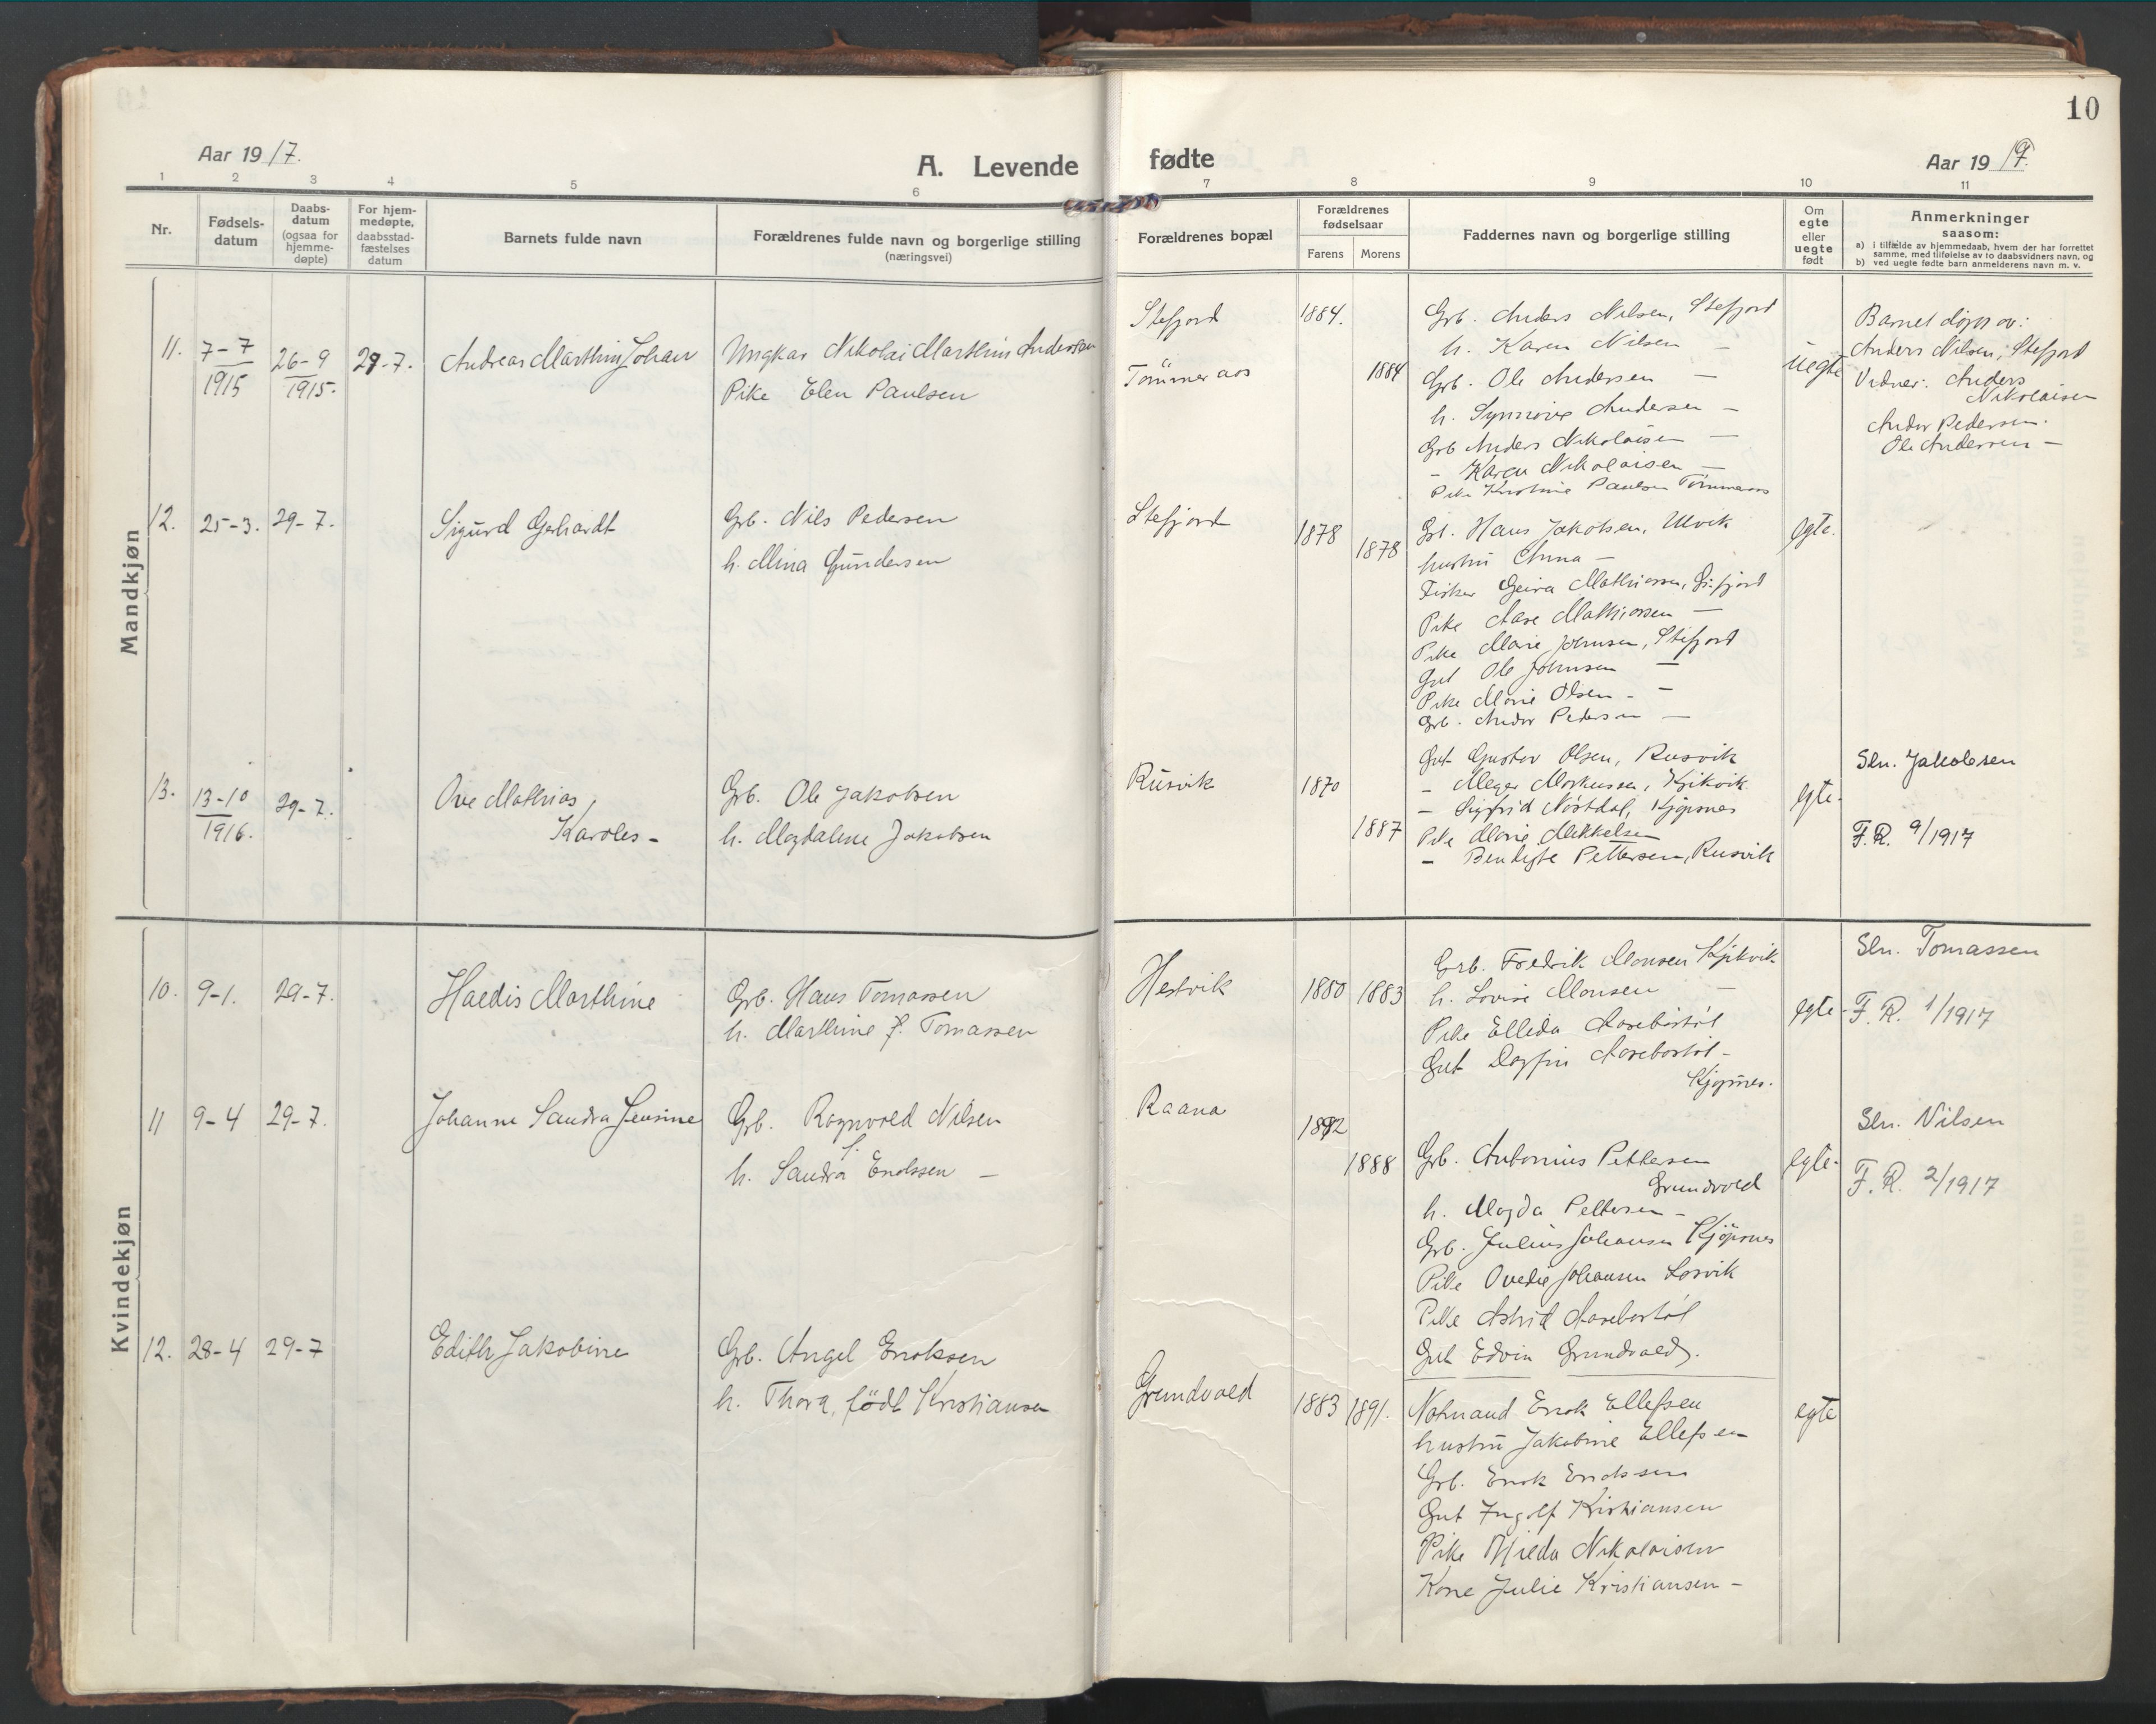 10
Aar 1917.
A. Levende
fødte
Aar 1917.
1 2 3 4 5 6 7 8 9 10 11
Nr.
Fødsels-
datum
Daabs-
datum
(ogsaa for
hjemme-
døpte)
For hjem-
medøpte,
daabsstad-
fæstelses
datum
Barnets fulde navn
Forældrenes fulde navn og borgerlige stilling
(næringsvei)
Forældrenes bopæl
Forældrenes
fødselsaar
Farens Morens
Faddernes navn og borgerlige stilling
Om
egte
eller
uegte
født
Anmerkninger
saasom:
a) i tilfælde av hjemmedaab, hvem der har forrettet
samme, med tilføielse av to daabsvidners navn, og
b) ved uegte fødte barn anmelderens navn m. v.
Mandkjøn
11. 7-7 1915 26-9 1915. 29-7. Andreas Marthin Johan
Ungkar Nikolai Marthin Andersen
Pike Elen Paulsen
Stefjord 1884.
Tømmeraas 1884
Grb. Anders Nilsen, Stefjord
h. Karen Nilsen —
Grb. Ole Andersen —
h. Synnöve Andersen —
Grb Anders Nikolaisen —
- Karen Nikolaisen —
Pike Kristine Paulsen Tömmeraas
Uegte
Barnet døpt av:
Anders Nilsen, Stefjord
Vidner: Anders
Nikolaisen
Andor Pedersen.
Ole Andersen —
12. 25-3. 29-7. Sigurd Gerhardt
Grb. Nils Pedersen
h. Mina Gundersen
Stefjord 1878 1878
Grb. Hans Jakobsen, Ulvik
hustru Anna —
Fisker Geira Mathiassen,
Pike Aase Mathiassen —
Pike Marie Johnsen, Stefjord
Gut Ole Johnsen —
Pike Marie Olsen - —
Grb. Andor Pedersen —
egte.
13. 13-10 1916. 29-7. Ove Mathias
Karoles -
Grb. Ole Jakobsen
h. Magdalene Jakobsen
Rusvik 1870 1887
Gut Gustav Olsen, Rusvik
- Meyer Markussen, Kjikvik
- Sigfrid Nøstdal, Kjøpsnes
Pike Marie Mikkelsen
- Bendigte Pettersen, Rusvik
egte.
Sln. Jakobsen
F.R. 9/1917
Kvindekjøn
10. 9-1. 29-7. Haedis Marthine
Grb. Hans Tomassen
h. Marthine f. Tomassen
Hestvik 1880 1883
Grb. Fredrik Monsen Kjikvik
h. Lovise Monsen —
Pike Ellida Aasebøstøl
Gut Dagfin Aasebøstøl -
Kjøpsnes.
egte -
Sln. Tomassen
F.R. 1/1917
11 9-4 29-7. Johanne Sandra Jensine
Grb. Ragnvald Nilsen
f.
h. Sandra Enokssen —
Raana 1892 1888
Grb. Antonius Pettersen
Grundvold
h. Magda Pettersen -
Grb. Julius Johansen Kjöpsnes
Pike Ovedie Johansen Losvik
Pike Astrid Aasebøstøl
Gut Edvin Grundvold.
egte -
Sln. Nilsen
F.R. 2/1917
12. 28-4 29-7 Edith Jakobine
Grb. Angel Enoksen
h. Thora, född Kristiansen
Grundvold 1883 1891.
Notmand Enok Ellefsen
hustru Jakobine Ellefsen
Grb. Enok Enokssen
Gut Ingolf Kristiansen
Pike Hjerda Nikolaisen
Kone Julie Kristiansen -
egte